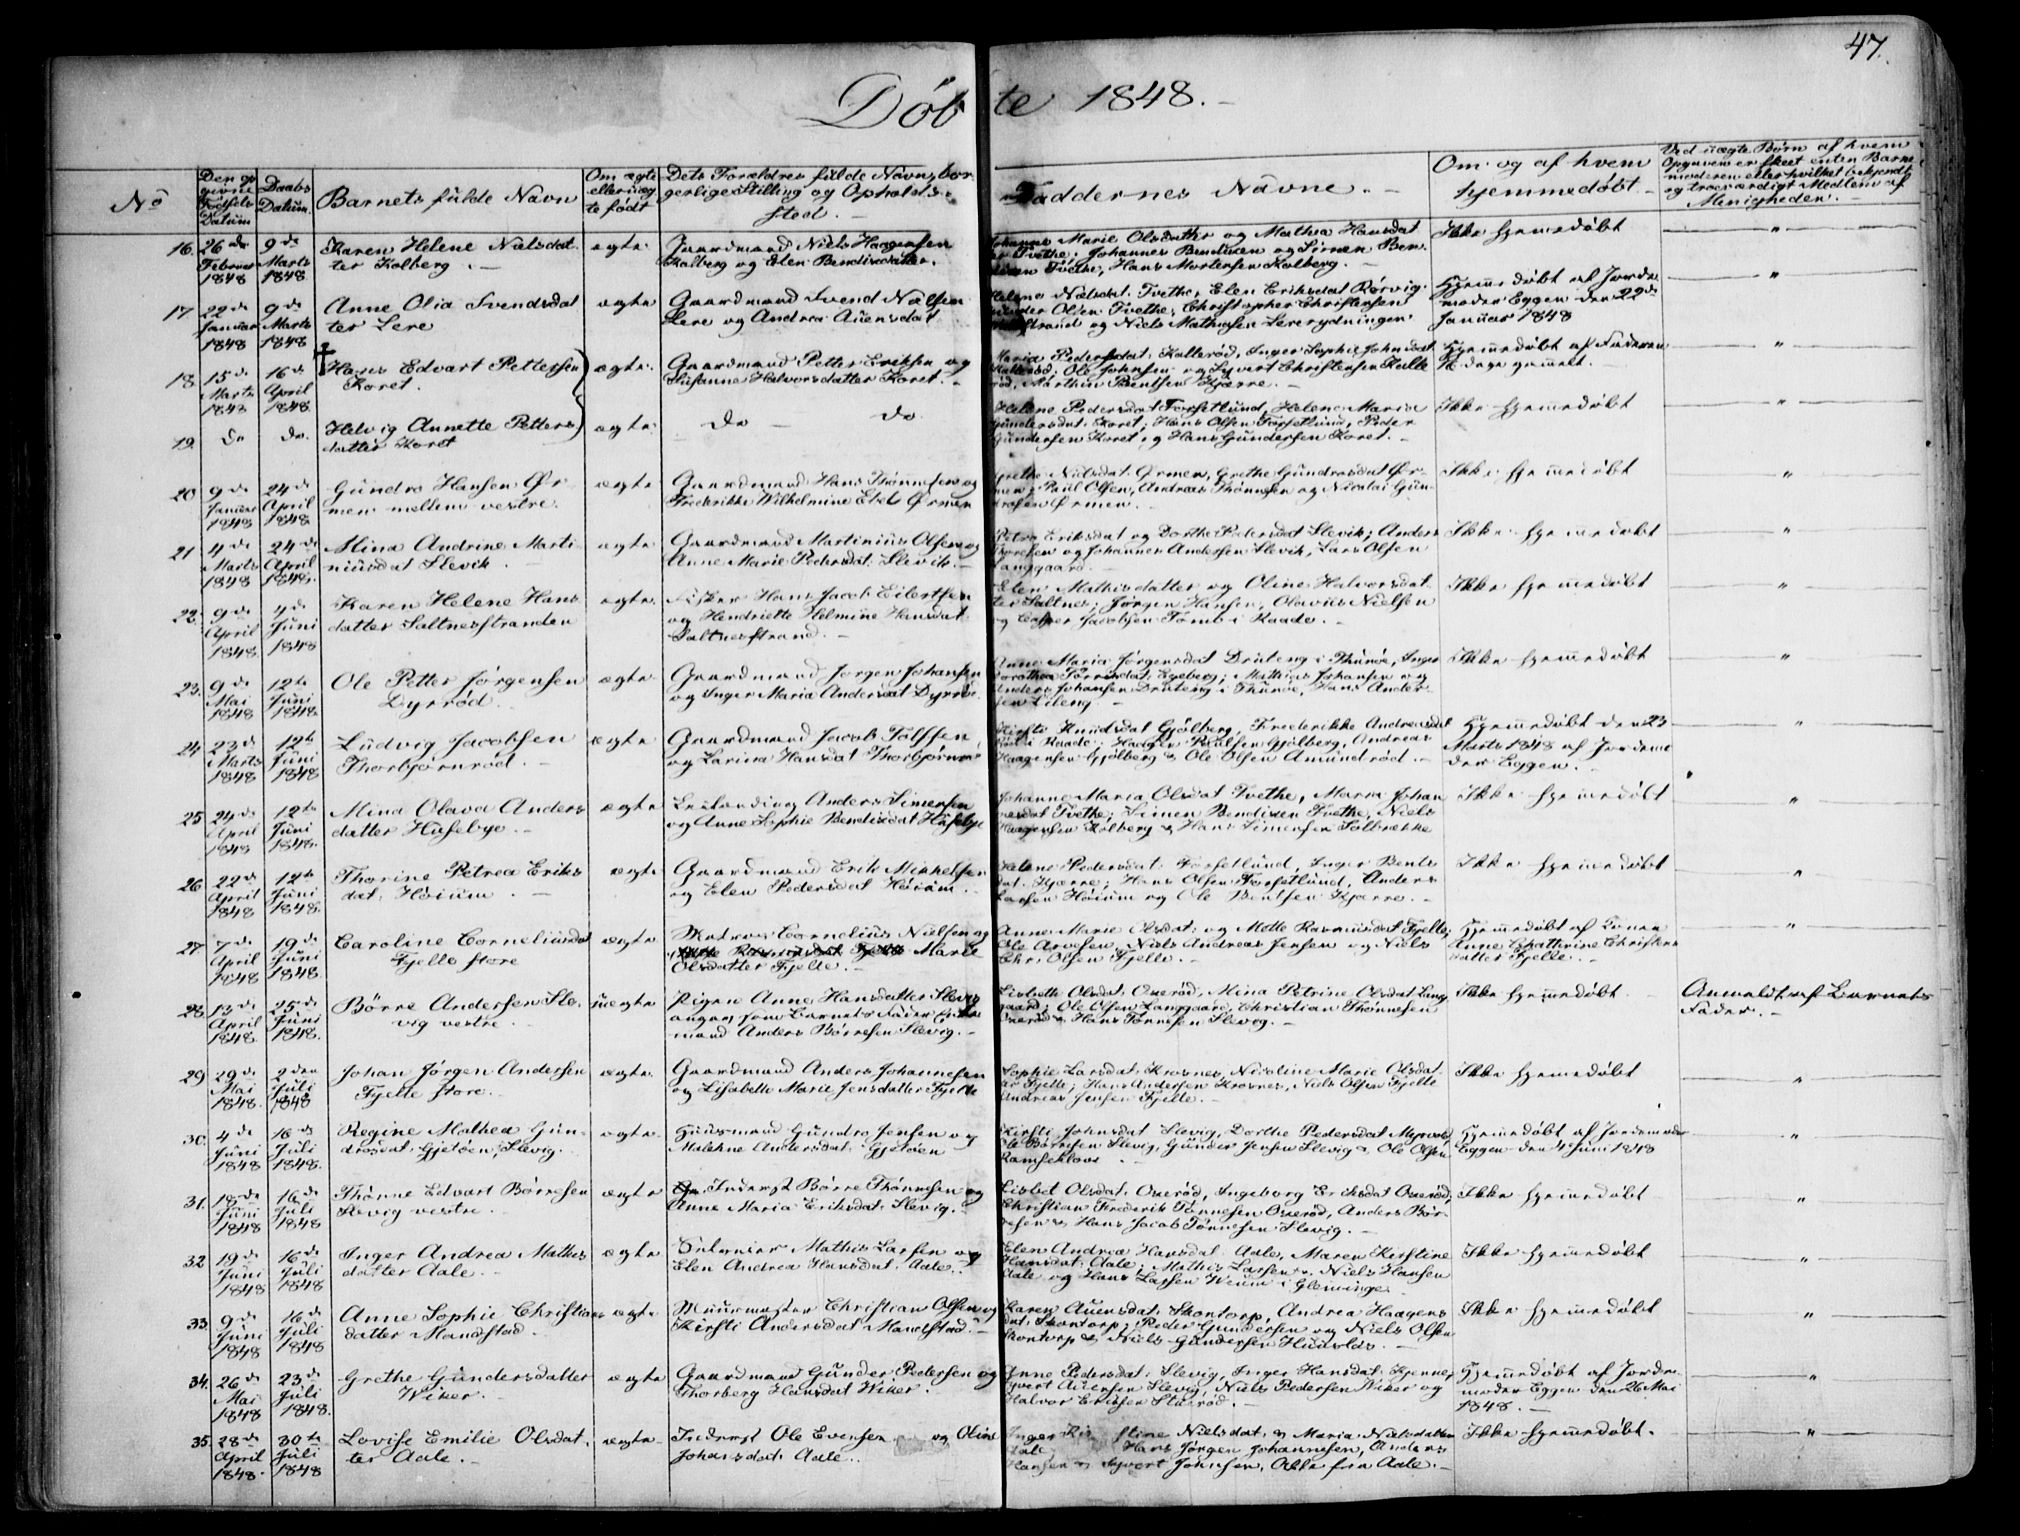 47.
Döbte 1848.
No
Den opgivne Födsels Datum
Daabs Datum.
Barnets fulde Navn
Om ægte eller uægte födt
Dets Forældres fulde Navn, borgerlige Stilling og Opholdssted.
Faddernes Navne.
Om og af hvem hjemmedöbt
Ved uægte Börn af hvem Opgaven er skeet enten Barnemoderen eller hvilket bekjendt og troeværdigt Medlem af Menigheden.
16. 26de Februar 1848
9de Marts 1848
Karen Helene Nielsdatter Kolberg.
ægte.
Gaardmand Niels Haagensen Kolberg og Elen Bendixdatter.
Johanne Marie Olsdatter og Mathea Hansdatter Tvethe; Johannes Bendixen og Simen Bendixen Tvethe, Hans Mortensen Kolberg.
Ikke hjemedöbt
17 22de Januar 1848
9de Marts 1848
Anne Olia Svendsdatter Lere
ægte
Gaardmand Svend Nielsen Lere og Andrea Auensdat
Helene Nielsdat. Tvethe, Elen Eriksdat Rörvig. Olsen Tvethe, Christopher Christensen og Niels Mathiesen Lererydningen.
Hjemedöbt af Jordemoder Eggen den 22de Januar 1848
18. 15de Marts 1848
16de April 1848.
Hans Edvart Pettersen Koret.
ægte.
Gaardmand Petter Eriksen og Susanne Halvorsdatter Koret.
Maria Pedersdat. Kalleröd, Inger Sophie Johnsdat. Kalleröd, Ole Johnsen og Syvert Christensen Kalleröd, Morthin Bentsen Kjærre.
Hjemedöbt af Faderen dage gammelt.
19. do do.
Helvig Annette Pettersdatter Koret
ægte.
do do
Helene Pedersdat Forsetlund, Helene Maria Gundersdat. Koret; Hans Olsen Forsetlund, Peder Gundersen Koret, og Hans Gundersen Koret.
Ikke hjemedöbt
20 9de Januar 1848
24de April 1848.
Gundro Hansen Örmen mellem vestre.
ægte
Gaardmand Hans Thönnesen og Frederikke Wilhelmine Ebel Örmen
Grethe Nielsdat. Örmen, Grethe Gundrosdat Örmen; Paul Olsen, Andreas Thönnesen og Nicolai Gundrosen Örmen.
Ikke hjemedöbt
21 4de Marts 1848
24de April 1848.
Mina Andrine Martiniusdat Slevik.
ægte
Gaardmand Martinius Olsen og Anne Marie Pedersdat. Slevik.
Petra Eriksdat og Dorthe Pedersdat Slevik; Anders Thoresen og Johannes Andersen Slevik, Lars Olsen Langgaard.
Ikke hjemedöbt
22. 9de April 1848.
4de Juni 1848
Karen Helene Hansdatter Saltnesstranden
ægte.
Fisker Hans Jacob Eilertsen og Hendriette Helmine Hansdat. Saltnesstrand.
Elen Mathisdatter og Oline Halvorsdatter Saltnes; Jörgen Hansen, Olavus Nielsen og Casper Jacobsen Tomb i Raade.
Ikke hjemedöbt
23. 9de Mai 1848
12te Juni 1848.
Ole Petter Jörgensen Dyrröd.
ægte.
Gaardmand Jörgen Johansen og Inger Maria Andersdat Dyrröd.
Anne Maria Jörgensdat Druteng i Thunöe, Inger Dorothea Torrisdat. Egeberg; Mathias Johansen og Anders Johansen Druteng i Thunöe, Hans Andersen Lileng.
Ikke hjemedöbt
24 23de Marts 1848
12te Juni 1848
Ludvig Jacobsen Thorbjörnröd.
ægte
Gaardmand Jacob Tolfsen og Larina Hansdat Thorbjörnröd
Kirste Knudsdat Gjölberg, Frederikke Andreasdat i Raade; Haagen Paulsen Gjölberg, Andreas Haagensen Gjölberg & Ole Olsen Amundröd.
Hjemedöbt den 23 Marts 1848 af Jordemoder Eggen.
25 24de April 1848
12te Juni 1848.
Mina Olava Andersdatter Husebye.
ægte
Anders Simensen og Anne Sophie Bendixdat Husebye
Johanne Maria Olsdat Tvethe, Maria Johannesdat Tvethe; Simen Bendixen Tvethe, Niels Haagensen Kolberg & Hans Simensen Solbrække
Ikke hjemedöbt
26 22de April 1848
12te Juni 1848.
Thorine Petrea Eriksdat. Höium.
ægte
Gaardmand Erik Mikkelsen og Elen Pedersdat Höium.
Helene Pedersdat. Forsetlund, Inger Bentsdat. Kjærre; Hans Olsen Forsetlund, Anders Larsen Höium og Ole Bentsen Kjærre.
Ikke hjemedöbt
27. 7de April 1848
19de Juni 1848.
Caroline Corneliusdat Fjelle store
ægte
Matros Cornelius Nielsen og Marie Olsdatter Fjelle.
Anne Marie Olsdat. og Mette Rasmusdat Fjelle; Ole Arvesen, Niels Andreas Jensen og Niels Chr. Olsen Fjelle.
Hjemedöbt af Konen Anne Chathrine Christensdatter Fjelle.
28. 13de April 1848.
25de Juni 1848.
Börre Andersen Slevig vestre.
uægte
Pigen Anne Hansdatter Slevig angav som Barnets Fader Gaardmand Anders Börresen Slevig.
Lisbeth Olsdat. Oxeröd, Mina Petrine Olsdat Langgaard; Ole Olsen Langgaard, Christian Thönnesen Oxeröd & Hans Tönnesen Slevig.
Ikke hjemedöbt.
Anmeldt af Barnets Fader.
29 29de Mai 1848.
2den Juli 1848
Johan Jörgen Andersen Fjelle store.
ægte.
Gaardmand Anders Johannesen og Lisabette Marie Jensdatter Fjelle
Sophie Larsdat. Krosnes, Nicoline Marie Olsdatter Fjelle; Hans Andersen Krosnes, Niels Olsen Fjelle Andreas Jensen Fjelle.
Ikke hjemedöbt
30. 4de Juni 1848
16de Juli 1848.
Regine Mathea Gundrosdat. Gjetöen, Slevig.
ægte.
Huusmand Gundro Jensen og Malehne Andersdat. Gjetöen
Kirsti Johnsdat Slevig, Dorthe Pedersdat Myrvold, Ole Börresen Slevig, Gunder Jensen Slevig &, Ole Olsen Ramseklove.
Hjemedöbt af Jordemoder Eggen den 4 Juni 1848
31. 18de Juni 1848
16de Juli 1848
Thönne Edvart Börresen Slevig vestre.
ægte
Inderst Börre Thönnesen og Anne Maria Eriksdat. Slevig.
Lisbet Olsdat. Oxeröd, Ingeborg Eriksdat Oxeröd, Christian Frederik Tönnesen Oxeröd, Anders Börresen &, Hans Jacob Tönnesen Slevig.
Ikke hjemedöbt
32 19de Juni 1848
16de Juli 1848
Inger Andrea Mathisdatter Aale.
ægte
Mathis Larsen og Elen Andrea Hansdat. Aale.
Elen Andrea Hansdat. Aale, Maren Kirstine Hansdat. Aale; Mathis Larsen &. Niels Hansen Aale og Hans Larsen Weum i Glemminge.
Ikke hjemedöbt
33. 9de Juni 1848
16de Juli 1848
Anne Sophie Christiansdatter Manstad.
ægte
Muurmester Christian Olsen og Kirsti Andersdat Manstad.
Karen Auensdat. Skontorp, Andrea Haagensdat. Skontorp; Peder Gundersen og Niels Olsen Skontorp &, Niels Gundersen
Ikke hjemedöbt
34. 26de Mai 1848
23de Juli 1848.
Grethe Gundersdatter Wiker.
ægte
Gaardmand Gunder Pedersen og Thorberg Hansdat Wiker.
Anne Pedersdat. Slevig, Inger Hansdat. Kjenne, Syvert Auensen Slevig, Niels Pedersen Wiker og Halvor Eriksen Sturöd.
Hjemedöbt af Jordemoder Eggen den 26 Mai 1848.
35. 28de April 1848.
30te Juli 1848
Lovise Emilie Olsdatter Aale.
ægte
Inderst Ole Evensen og Oline Johansdat. Aale.
Inger Kirstine Nielsdat. & Maria Nielsdatter Aale Hans Jörgen Johannesen, Anders Hansen & Syvert Johnsen, Alle fra Aale.
Ikke hjemedöbt.